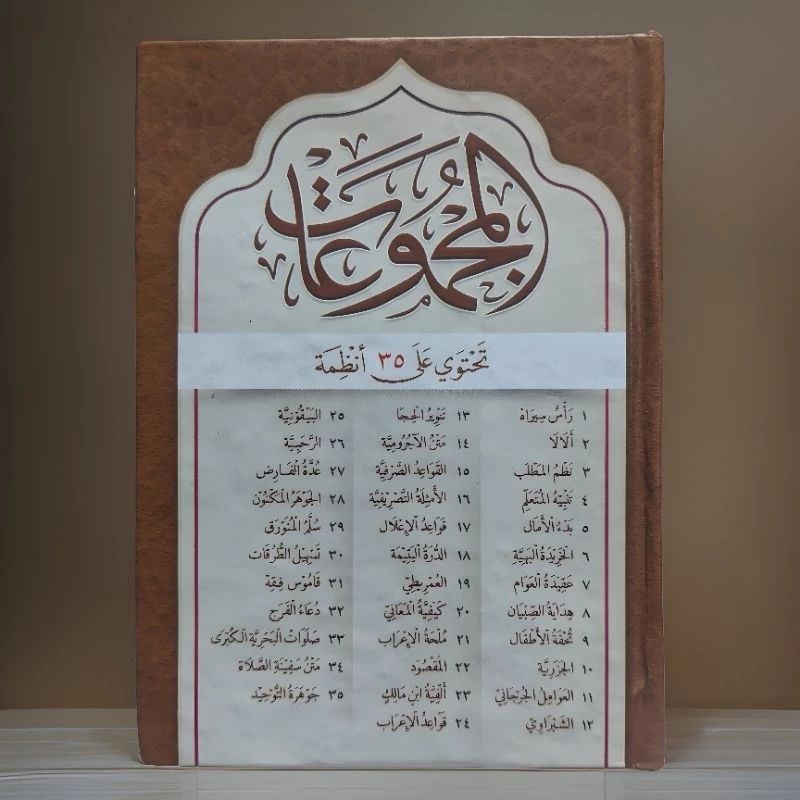 المجموعات
تَحْتَوِي عَلَى ٣٥ أَنْظِمَة
١ رَأْسُ سِيرَاه
٢ أَلَالَا
٣ نَظْمُ المَطْلَب
٤ تَنْبِيْهُ المُتَعَلِّم
٥ بَدْءُ الْأَمَال
٦ الخَرِيْدَةُ الْبَهِيَّةِ
٧ عَقِيْدَةُ الْعَوَام
٨ هِدَايَةُ الصِّبْيَان
٩ تُحْفَةُ الْأَطْفَال
١٠ الجَزَرِيَّة
١١ العَوَامِلُ الجُرْجَانِيْ
١٢ الشَّبْرَاوِيْ
١٣ تَنْوِيْرُ الحِجَا
١٤ مَتْنُ الْآجُرُومِيَّة
١٥ القَوَاعِدُ الصَّرْفِيَّة
١٦ الْأَمْثِلَةُ التَّصْرِيْفِيَّة
١٧ قَوَاعِدُ الْإِعْلَال
١٨ الدُّرَةُ الْيَتِيْمَة
١٩ العِمْرِيطِيْ
٢٠ كَيْفِيَّةُ الْمَعَانِيْ
٢١ مُلْحَةُ الْإِعْرَاب
٢٢ المَقْصُوْد
٢٣ أَلْفِيَّةُ ابْنِ مَالِكٍ
٢٤ قَوَاعِدُ الْإِعْرَاب
٢٥ البَيْقُوْنِيَّة
٢٦ الرَّحَبِيَّة
٢٧ عُدَّةُ الْفَارِض
٢٨ الجَوْهَرُ الْمَكْنُوْن
٢٩ سُلَّمُ الْمُنَوْرَق
٣٠ تَسْهِيْلُ الطُّرُقَات
٣١ قَامُوْس فِقِهْ
٣٢ دُعَاءُ الْفَرَج
٣٣ صَلَوَاتُ الْبَحْرِيَّةِ الْكُبْرَى
٣٤ مَتْنُ سَفِيْنَةِ الصَّلَاة
٣٥ جَوْهَرَةُ التَّوْحِيْد